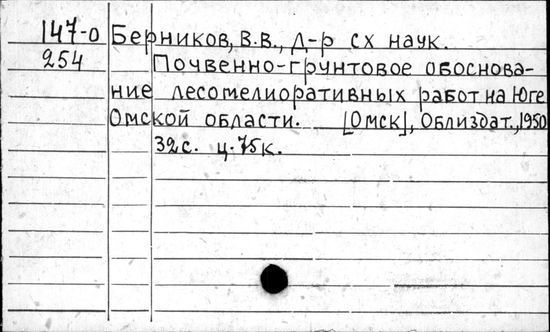 147-о Берников, В.В., Д-р сх наук.
254 Почвенно-грунтовое обоснова-
ние лесомелиоративных работ на Юге
Омской области. [Омск], Облиздат., 1950
32с. ц. 75к.